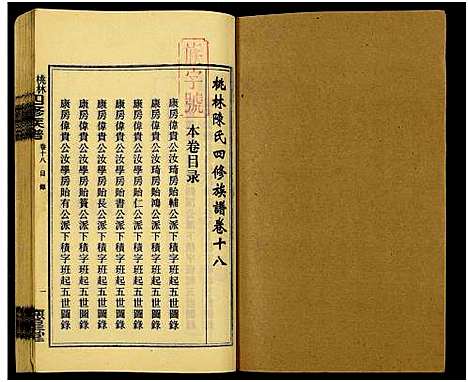 桃林陳氏四修族譜卷十八
族字號
本卷目录
康房偉貴公汝琦房貽輔公派下積字班起五世圖錄
康房偉貴公汝琦房貽鴻公派下積字班起五世圖錄
康房偉貴公汝學房貽仁公派下積字班起五世圖錄
康房偉貴公汝學房貽書公派下積字班起五世圖錄
康房偉貴公汝學房貽長公派下積字班起五世圖錄
康房偉貴公汝學房貽贊公派下積字班起五世圖錄
康房偉貴公汝學房貽有公派下積字班起五世圖錄
桃林四修族譜
卷十八 目錄
一